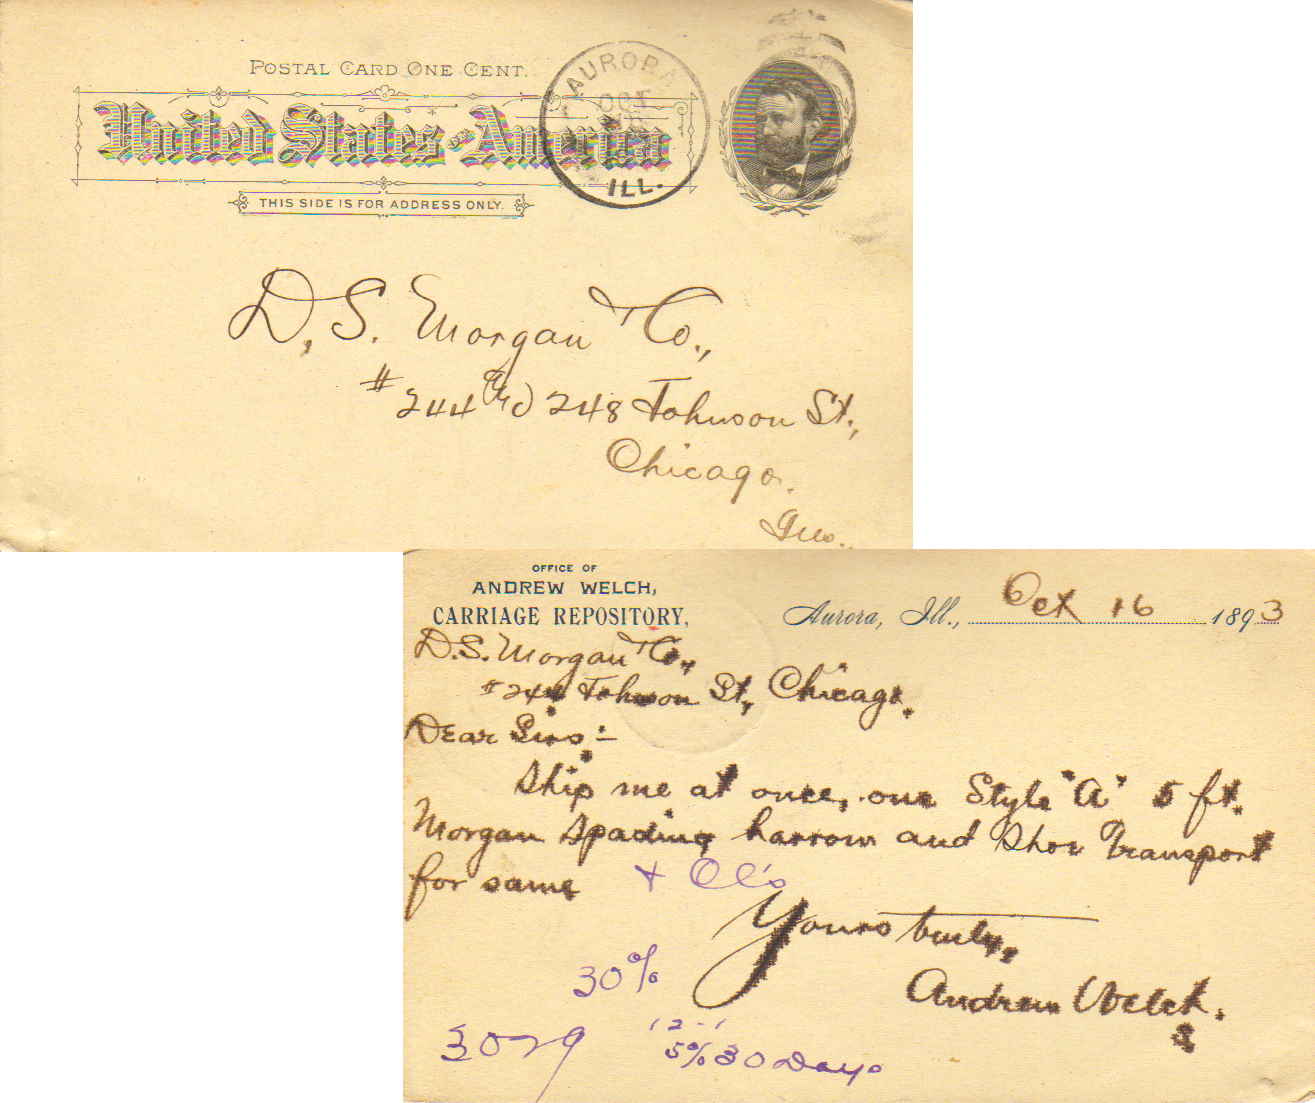 POSTAL CARD ONE CENT.
United States of America
THIS SIDE IS FOR ADDRESS ONLY.
AURORA
OCT
ILL.
D. S. Morgan Co.,
# 244 and 248 Johnson St.,
Chicago.
OFFICE OF
ANDREW WELCH,
CARRIAGE REPOSITORY,
Aurora, Ill., Oct 16 1893
D.S. Morgan Co.,
# 244 Johnson St, Chicago.
Dear Sirs:-
Ship me at once, one Style "A" 5 ft.
Morgan Spading harrow and Shoe Transport
for same
30%
Yours truly,
Andrew Welch.
3029
12-1
5% 30 Days